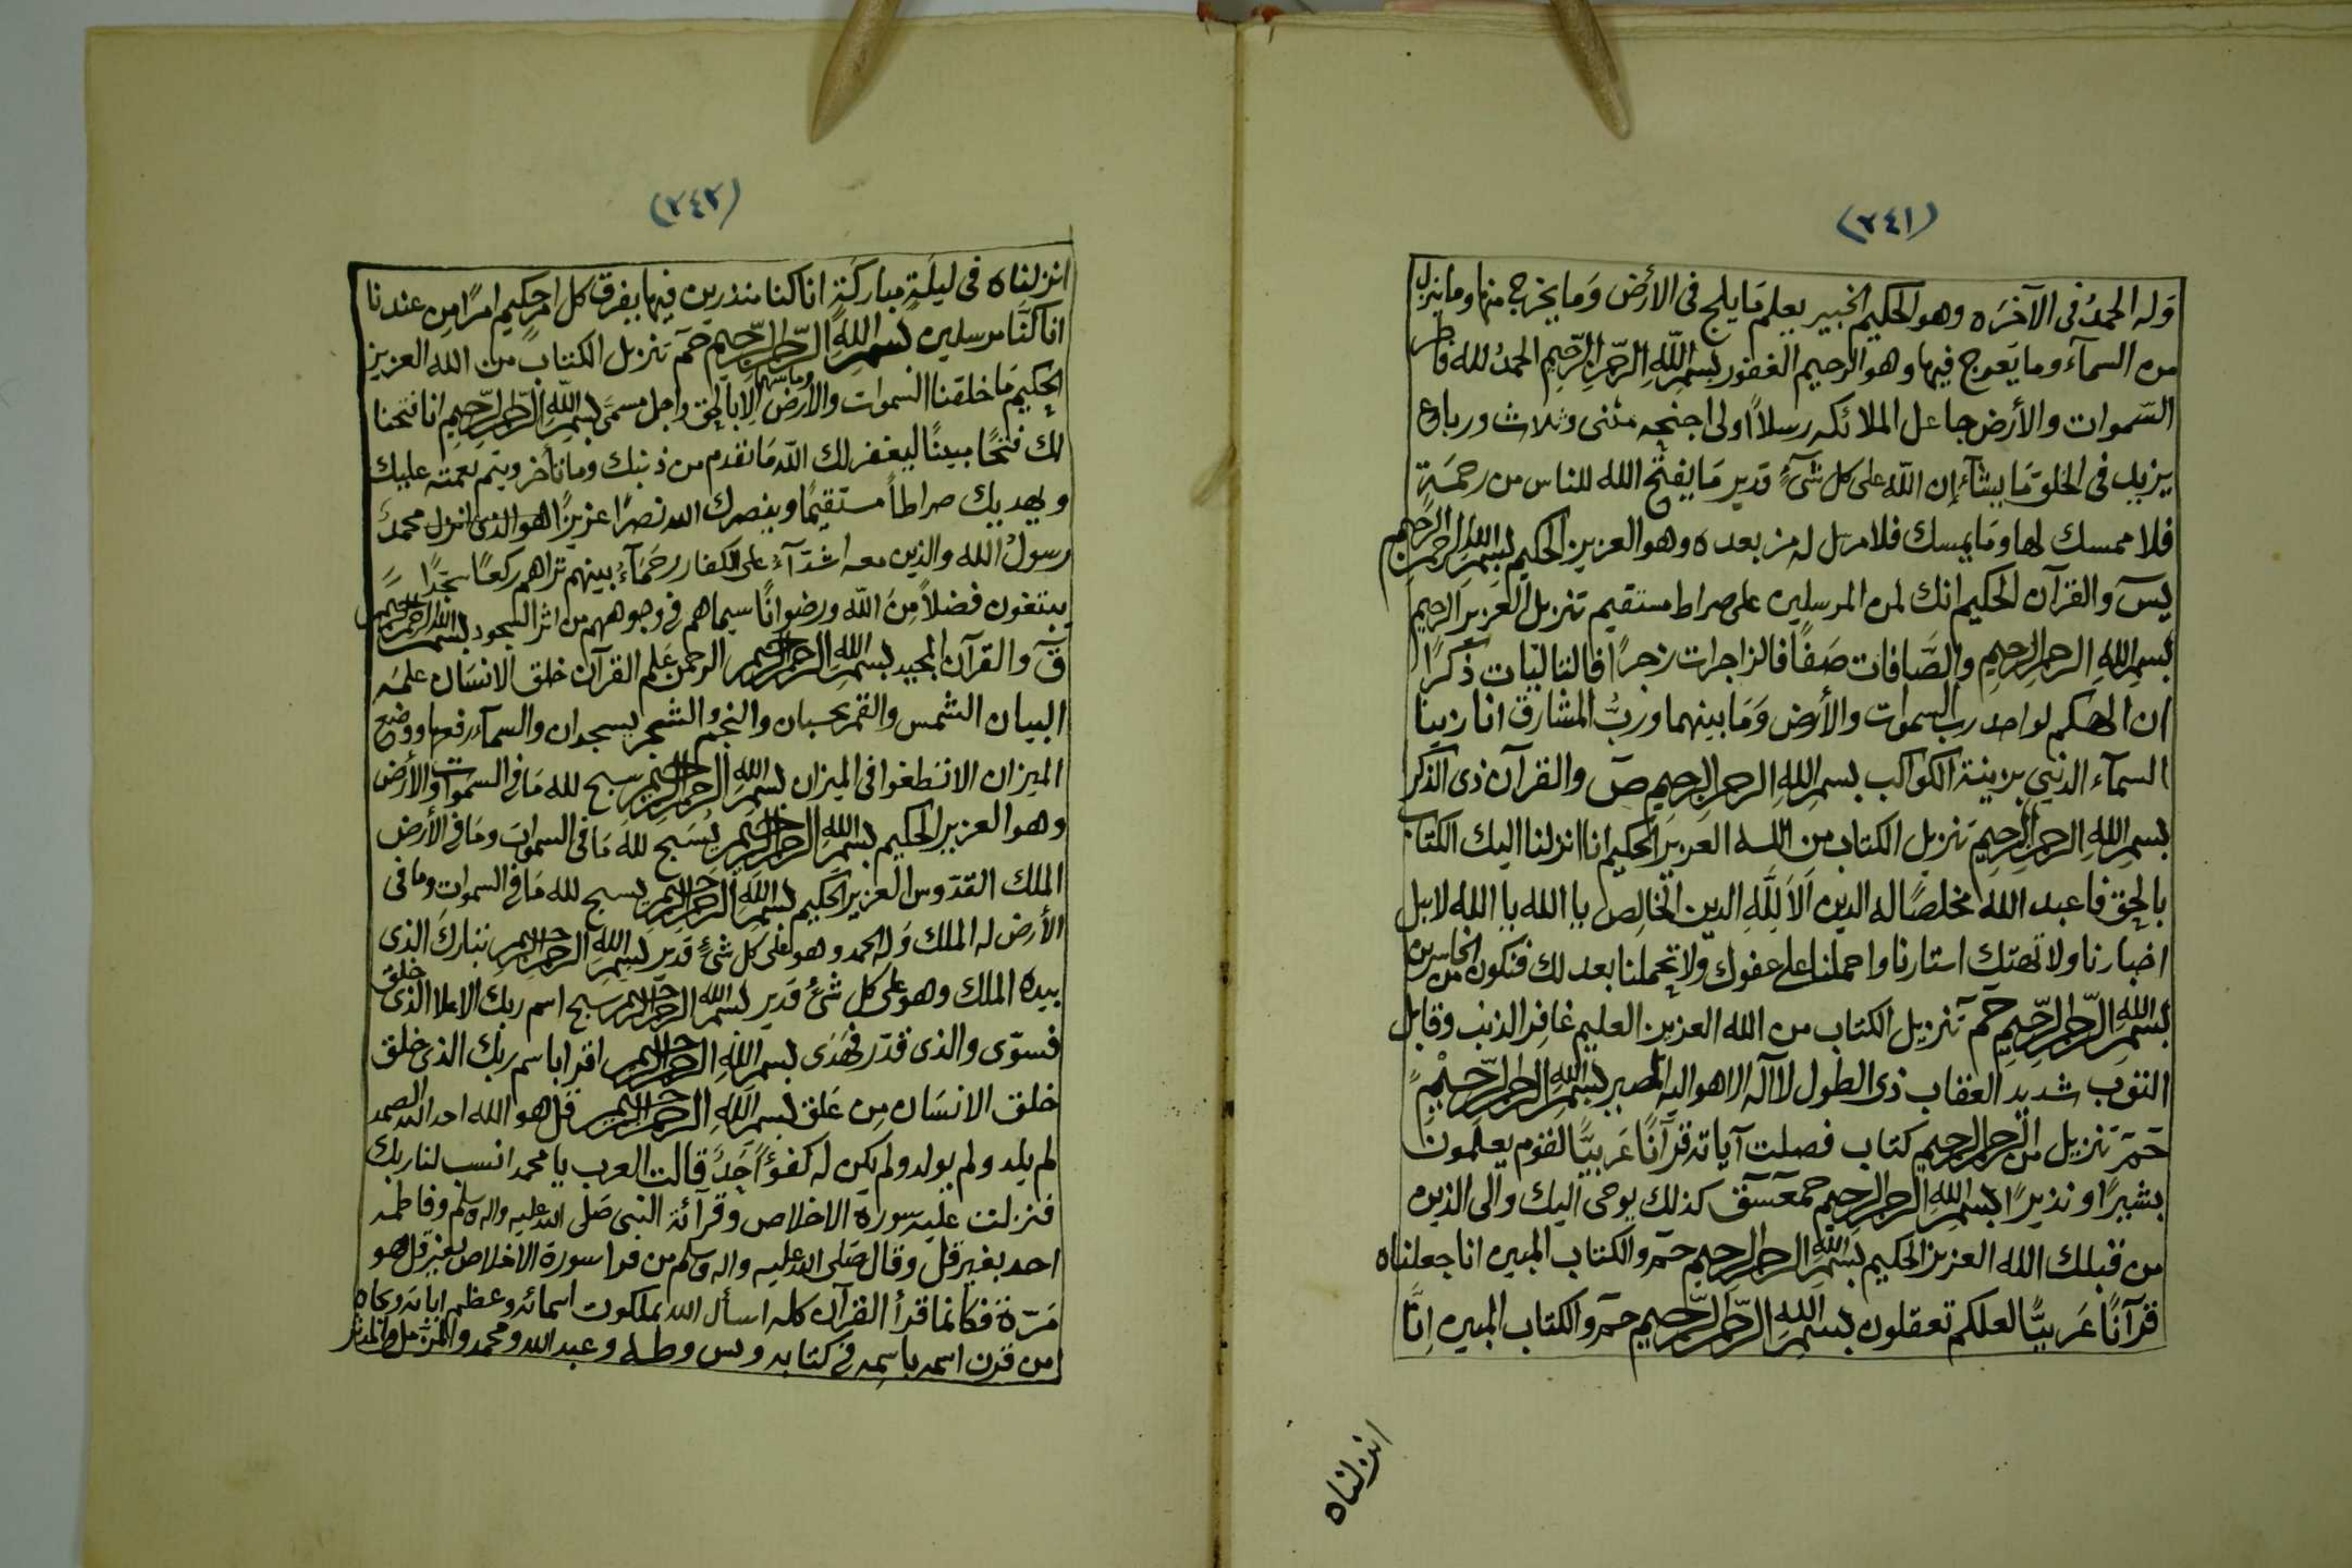 (٢٤١)
وَله الحمدُ فى الآخرَه وهو الحكيم الخبير يعلم مَا يلج فى الأرض وَما يخرج منها وما ينزل
من السمآء وما يَعرج فيها وهو الرحيم الغفور بسم اللّه الرّحمن الرّحيم الحمدُ لله فاطر
السّموات والأرض جاعل الملائكه رسلاً اولى اجنحه مثنى وثلاث ورباع
يزيد فى الخلق مَا يشآء إن اللّه على كل شىءٍ قدير مَا يفتح الله للناس من رحمَةٍ
فلا ممسك لها ومَا يمسك فلا مرسل له من بعده وهو العزيز الحكيم بسم الله الرحمن الرحيم
يسَ والقرآن الحكيم انك لمن المرسلين على صراط مستقيم تنزيل العَزيز الرحيم
بسم الله الرحمن الرحيم والصَّافات صَفاً فالزاجرات زجراً فالتاليَات ذكرًا
ان الهكم لواحد رب السموات والأرض وَمَا بينهما وربُّ المشارق انا زينا
السمآء الدنيى بزينة الكواكب بسم الله الرحمن الرحيم صَ والقرآن ذى الذكر
بسم الله الرحمن الرحيم تَنزيل الكتاب من الله العزيز الحكيم انا انزلنا اليك الكتاب
بالحق فاعبد الله مخلصًا له الدين اَلاَ لِلّهِ الدين الخالص يا الله يا الله لا تبل
اخبارنا ولا تهتك استارنا واحملنا على عفوك ولا تحملنا بعدلك فنكون من الخاسرين
بسم الله الرّحمن الرّحيم حمَ تَنزيل الكتاب من الله العزيز العليم غافر الذنب وقابل
التوَب شديد العقاب ذى الطول لا آله الا هو اليه المصير بسم الله الرحمن الرّحيم
حَمَ تَنزيل من الرحمن الرحيم كتاب فصلت آياته قرآنًا عَربيًّا لقوم يعلمون
بشيرًا ونذيرًا بسم الله الرحمن الرحيم حمعسق كذلك يوحى اليك والى الذين
من قبلك الله العزيز الحكيم بسم الله الرحمن الرحيم حم والكتاب المبين انا جعلناه
قرآنًا عَربيًّا لعلكم تعقلون بسم الله الرّحمن الرّحيم حم والكتاب المبين اِنّا
انزلناه
(٢٤٢)
انزلناه فى ليلَةٍ مباركَةٍ انا كنا منذرين فيها يفرق كل امرٍ حكيم امرًا من عندنا
انا كنَّا مرسلين بسم اللهِ الرّحمن الرّحيم حمَ تنزيل الكتاب من الله العزيز
الحكيم مَا خلقنا السموات والأرض وما بينهما الا بالحق واجل مسمّى بسم الله الرّحمن الرّحيم انا فتحنا
لك فتحًا مبينًا ليغفر لك اللّه مَا تقدم من ذنبك وما تأخر ويتم نعمته عليك
ويهديك صراطاً مستقيمًا وينصرك الله نصرًا عزيزًا هو الذى انزل محمدَ
رسولُ الله والذين معه اشدّآءُ على الكفار رحمَآءُ بينهم تراهم ركعًا سجّدًا
يبتغون فضلاً مِنَ اللّه ورضوانًا سيماهم فى وجوههم من اثر السجود بسم الله الرحمن الرحيم
قَ والقرآن المجيد بسم الله الرحمن الرحيم الرحمن عَلم القرآن خلق الانسَان علمَه
البيان الشمس والقمر بحسبان والنجم والشجر يسجدان والسمآء رفعها ووضع
الميزان الا تَطغوا فى الميزان بسم الله الرحمن الرحيم سبح لله مَا فى السموات والأرض
وهو العزيز الحكيم بسم الله الرحمن الرحيم يُسَبح للهَ مَا فى السموات ومَا فى الأرض
الملك القدّوس العزيز الحكيم بسم الله الرحمن الرحيم يسبح لله مَا فى السموات وما فى
الأرض له الملك وَله الحمد وهو على كل شىءٍ قدير بسم الله الرحمن الرحيم تبارك الذى
بيده الملك وهو على كل شىءُ قدير بسم الله الرحمن الرحيم سبح اسم ربك الاعلا الذى خلق
فسوّى والذى قدّر فهَدَى بسم الله الرحمن الرحيم اقرا باسم ربك الذى خلق
خلق الانسَان مِن عَلق بسم الله الرحمن الرحيم قل هو الله احد الله الصمد
لم يلد ولم يولد ولم يكن له كفؤاً اَحَدٌ قالت العرب يا محمد انسب لنا ربك
فنزلت عليه سورة الاخلاص وقرآئة النبى صَلى الله عليه واله وسلم وفاطمه
احد بغير قل وقال صَلى الله عليه واله وسلم من قرا سورة الاخلاص بغير قل هو
مَرّة فكانما قرأ القرآن كله اسأل الله بملكوت اسمائه وعظم اياته وبجاه
من قرن اسمه باسمه فى كتابه ويس وطه وعبد الله ومحمد والمزمل والمدثر